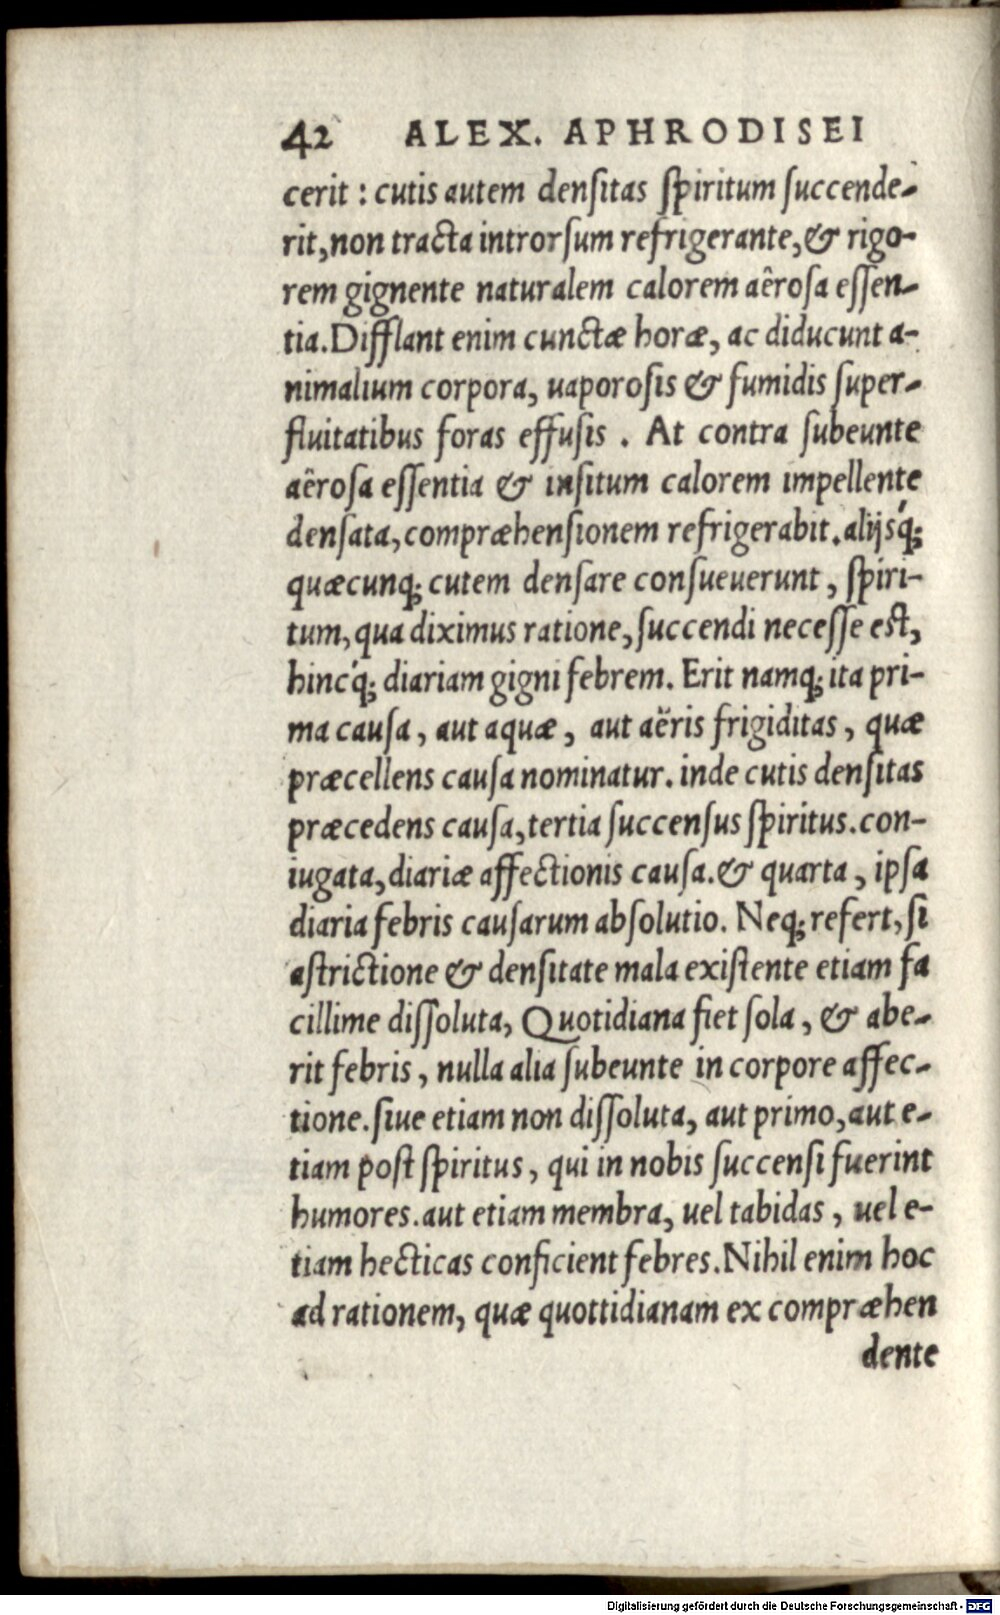 42 ALEX. APHRODISEI
cerit : cutis autem denſitas ſpiritum ſuccende-
rit, non tracta introrſum refrigerante, & rigo-
rem gignente naturalem calorem aêroſa eſſen-
tia. Difflant enim cunctæ horæ, ac diducunt a-
nimalium corpora, uaporoſis & fumidis ſuper-
fluitatibus foras effuſis . At contra ſubeunte
aêroſa eſſentia & inſitum calorem impellente
denſata, compræhenſionem refrigerabit. alijsq́;
quæcunq; cutem denſare conſueuerunt, ſpiri-
tum, qua diximus ratione, ſuccendi neceſſe eſt,
hincq́; diariam gigni febrem. Erit namq; ita pri-
ma cauſa, aut aquæ, aut aëris frigiditas, quæ
præcellens cauſa nominatur. inde cutis denſitas
præcedens cauſa, tertia ſuccenſus ſpiritus. con-
iugata, diariæ affectionis cauſa. & quarta, ipſa
diaria febris cauſarum abſolutio. Neq; refert, ſi
aſtrictione & denſitate mala exiſtente etiam fa
cillime diſſoluta, Quotidiana fiet ſola, & abe-
rit febris, nulla alia ſubeunte in corpore affec-
tione. ſiue etiam non diſſoluta, aut primo, aut e-
tiam poſt ſpiritus, qui in nobis ſuccenſi fuerint
humores. aut etiam membra, uel tabidas, uel e-
tiam hecticas conficient febres. Nihil enim hoc
ad rationem, quæ quottidianam ex compræhen
dente
Digitalisierung gefördert durch die Deutsche Forschungsgemeinschaft - DFG